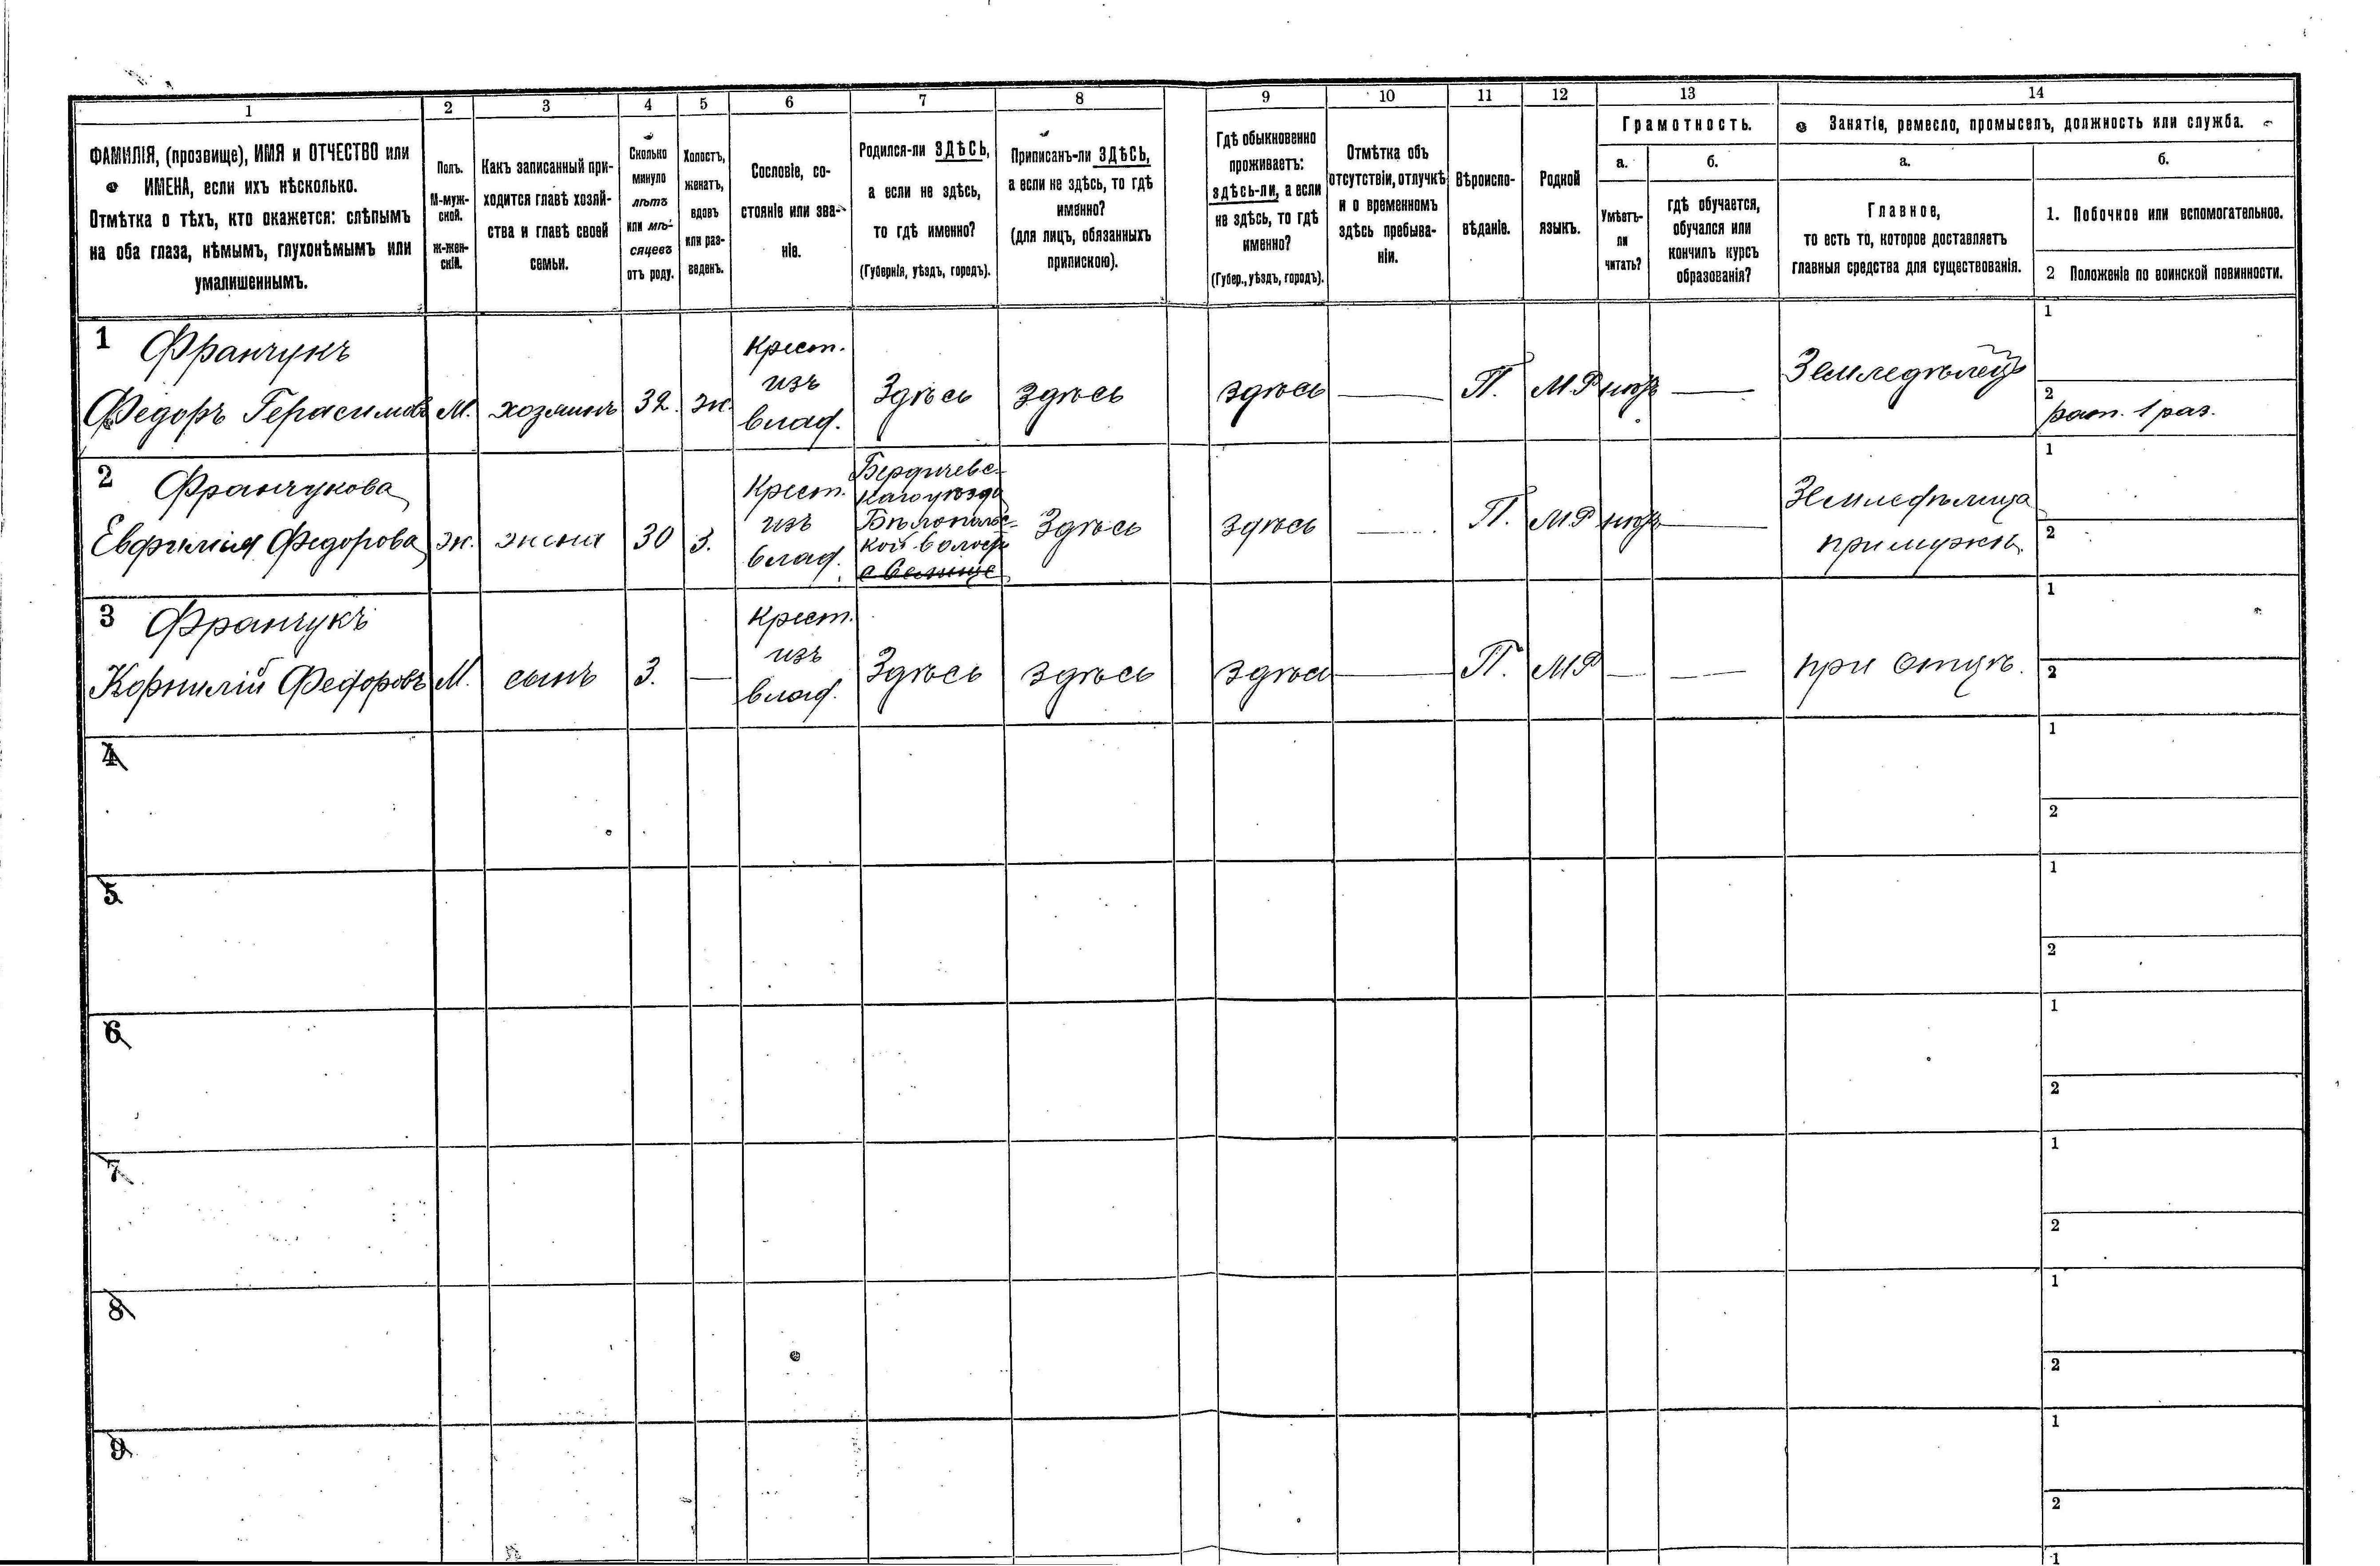 1 2 3 4 5 6 7 8 9 10 11 12 13 14
ФАМИЛІЯ, (прозвище), ИМЯ и ОТЧЕСТВО или
ИМЕНА, если ихъ нѣсколько.
Отмѣтка о тѣхъ, кто окажется: слѣпымъ
на оба глаза, нѣмымъ, глухонѣмымъ или
умалишеннымъ.
Полъ.
М-муж-
ской.
Ж-жен-
скій.
Какъ записанный при-
ходится главѣ хозяй-
ства и главѣ своей
семьи.
Сколько
минуло
лѣтъ
или мѣ-
сяцевъ
отъ роду.
Холостъ,
женатъ,
вдовъ
или раз-
веденъ.
Сословіе, со-
стояніе или зва-
ніе.
Родился-ли ЗДѢСЬ,
а если не здѣсь,
то гдѣ именно?
(Губернія, уѣздъ, городъ).
Приписанъ-ли ЗДѢСЬ,
а если не здѣсь, то гдѣ
именно?
(для лицъ, обязанныхъ
припискою).
Гдѣ обыкновенно
проживаетъ:
здѣсь-ли, а если
не здѣсь, то гдѣ
именно?
(Губер., уѣздъ, городъ).
Отмѣтка объ
отсутствіи, отлучкѣ
и о временномъ
здѣсь пребыва-
ніи.
Вѣроиспо-
вѣданіе.
Родной
языкъ.
Грамотность.
а.
Умѣетъ-
ли
читать?
б.
гдѣ обучается,
обучался или
кончилъ курсъ
образованія?
Занятіе, ремесло, промыселъ, должность или служба.
а.
Главное,
то есть то, которое доставляетъ
главныя средства для существованія.
б.
1. Побочное или вспомогательное.
2 Положеніе по воинской повинности.
1 Франчукъ
Федоръ Герасимовъ
М.
хозяинъ
32.
ж.
Крест.
изъ
влад.
Здѣсь
здѣсь
здѣсь
П.
МР
нѣтъ
Земледѣлецъ
1
2
рат. 1 раз.
2 Франчукова
Евфимія Федорова
ж.
жена
30
з.
Крест.
изъ
влад.
Бердичевс-
каго уѣзда
Бѣлопольс-
кой волости
Здѣсь
здѣсь
П.
МР
нѣтъ
Земледѣлица
при мужѣ.
1
2
3 Франчукъ
Корнилій Федоровъ
М.
сынъ
3.
Крест.
изъ
влад.
Здѣсь
здѣсь
здѣсь
П.
МР
при отцѣ.
1
2
4
1
2
5
1
2
6
1
2
7
1
2
8
1
2
9
1
2
1